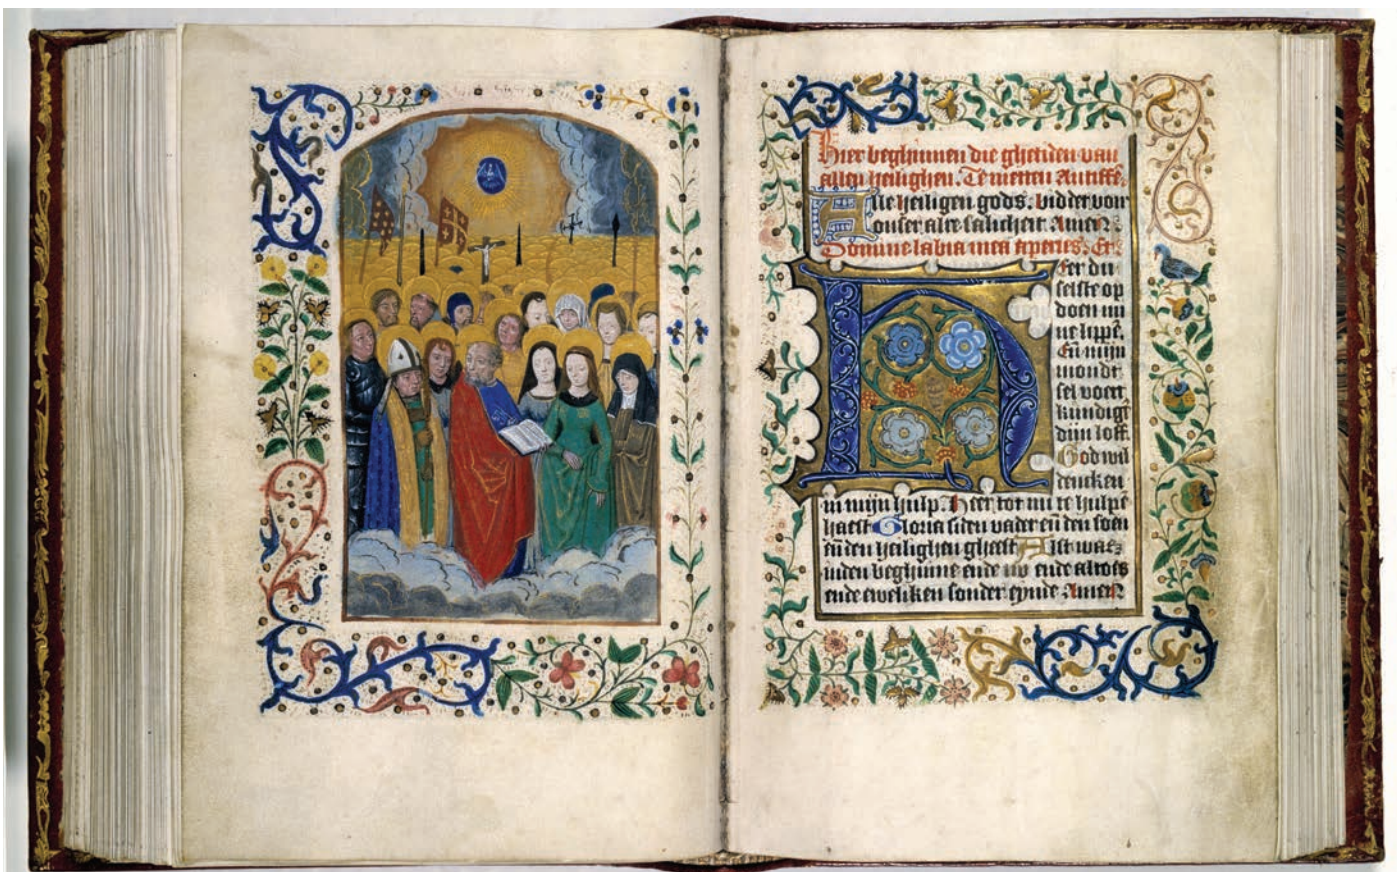 Hier beghinnen die ghetiden van
allen heilighen. Te metten Antiffē.
Alle heiligen gods. biddet voir
onser alre salicheit Amen
Domine labia mea aperies. Et
Heer du
selste op
doen mi
ne lippē.
En mijn
mondt
sel voert
kundigē
dijn loff.
God wil
dencken
in mijn hulp. Heer tot mi te hulpē
haest Gloria si den vader eñ den soen
eñ den heilighen gheest Alst was
inden beghinne ende nv ende altoes
ende eweliken sonder eynde Amen